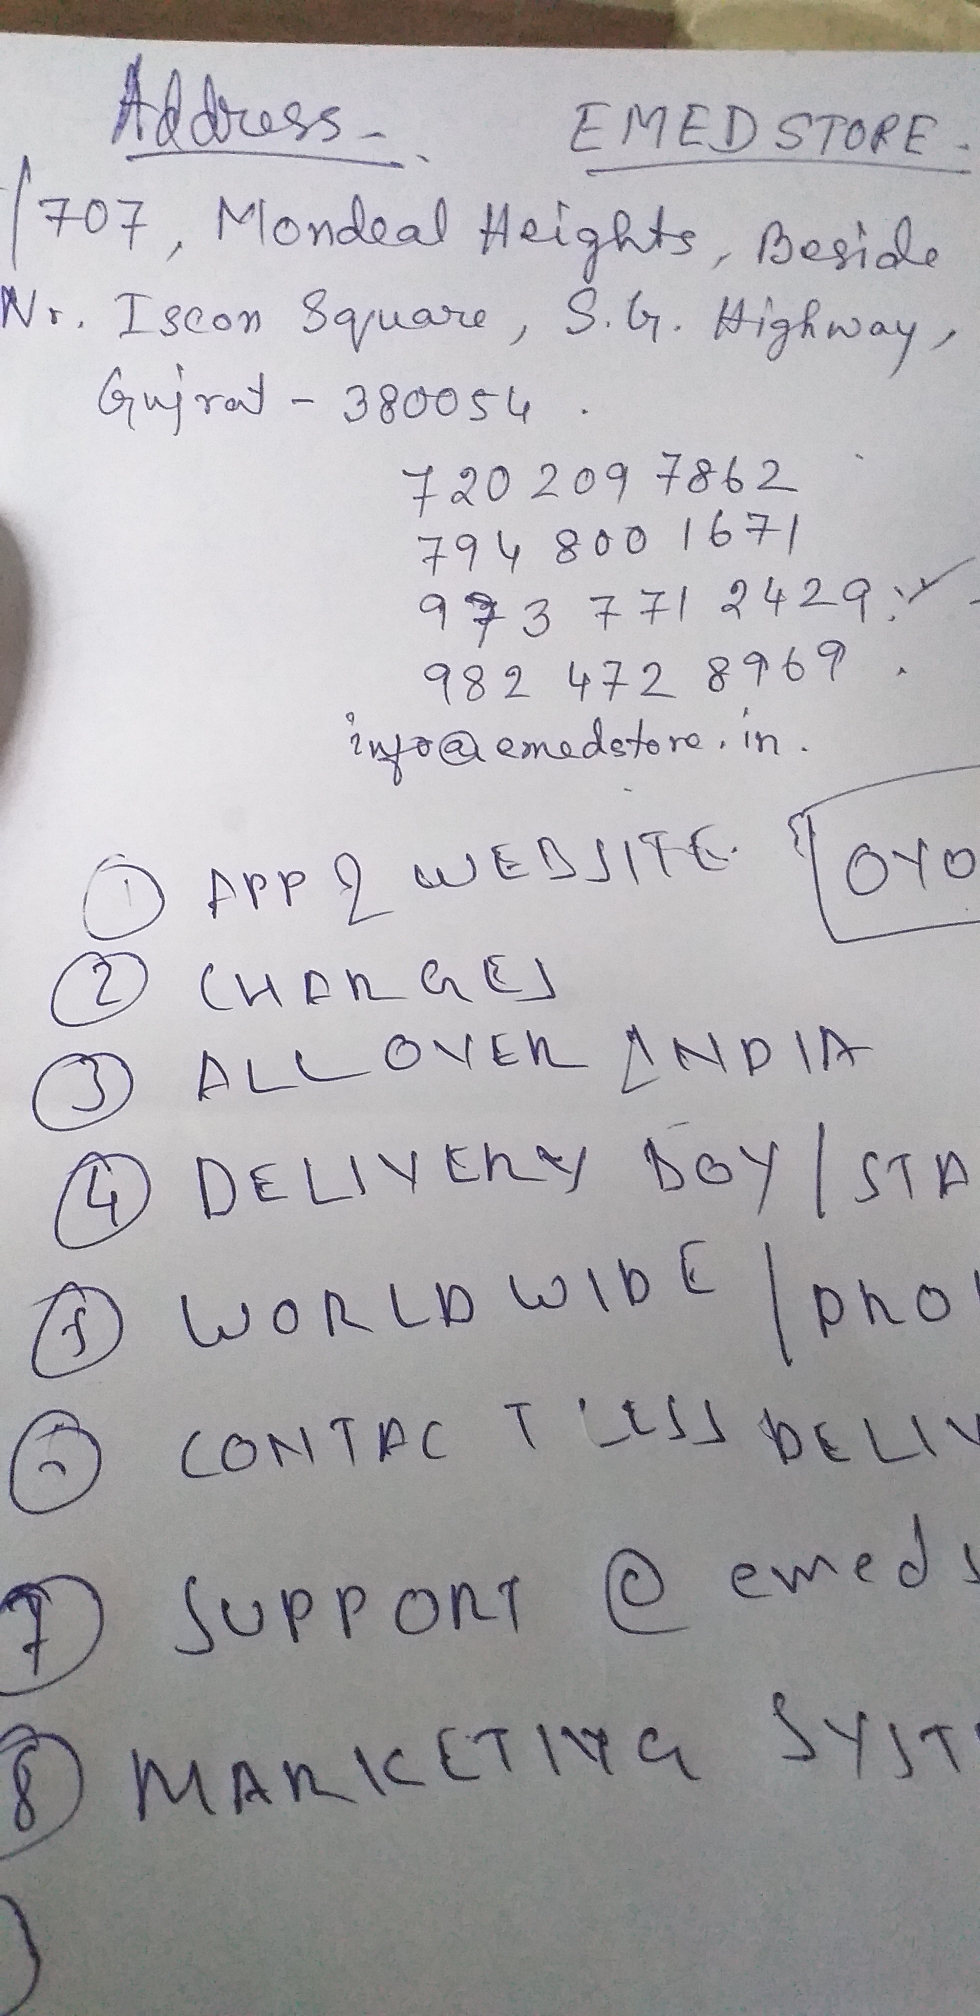 Address. EMED STORE.
/707, Mondeal Heights, Beside
Nr. Iscon Square, S.G. Highway,
Gujrat - 380054.
720 209 7862
794 800 1671
973 771 2429
982 472 8969.
info@emedstore.in.
① APP & WEBSITE. OYO
② CHARGES
③ ALL OVER INDIA
④ DELIVERY BOY / STA
⑤ WORLD WIDE / PRO
⑥ CONTACT LESS DELIV
⑦ SUPPORT @ emeds
⑧ MARKETING SYST